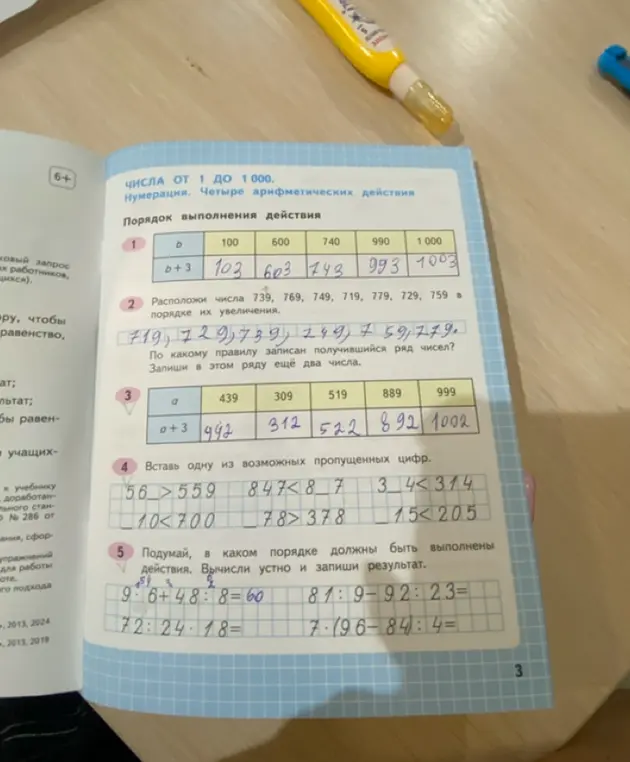 6+
ковый запрос
их работников,
щихся).
ору, чтобы
равенство,
ат;
льтат;
бы равен-
учащих-
к учебнику
доработан-
№ 286 от
ания, сфор-
упражнений
для работы
ого подхода
, 2013, 2024
, 2013, 2019
ЧИСЛА ОТ 1 ДО 1 000.
Нумерация. Четыре арифметических действия
Порядок выполнения действия
1 b 100 600 740 990 1 000
b + 3 103 603 743 993 1003
2 Расположи числа 739, 769, 749, 719, 779, 729, 759 в
порядке их увеличения.
719, 729, 739, 749, 759, 779.
По какому правилу записан получившийся ряд чисел?
Запиши в этом ряду ещё два числа.
3 a 439 309 519 889 999
a + 3 442 312 522 892 1002
4 Вставь одну из возможных пропущенных цифр.
56_>559 847<8_7 3_4<314
_10<700 _78>378 _15<205
5 Подумай, в каком порядке должны быть выполнены
действия. Вычисли устно и запиши результат.
9·6+48:8=60 81:9-92:23=
72:24·18= 7·(96-84):4=
3